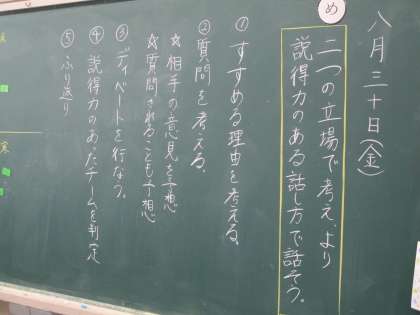 八月三十日(金)
め
二つの立場で考え、より
説得力のある話し方で話そう。
①すすめる理由を考える。
②質問を考える。
☆相手の意見を予想
☆質問されることも予想
③ディベートを行なう。
④説得力のあったチームを判定
⑤ふり返り